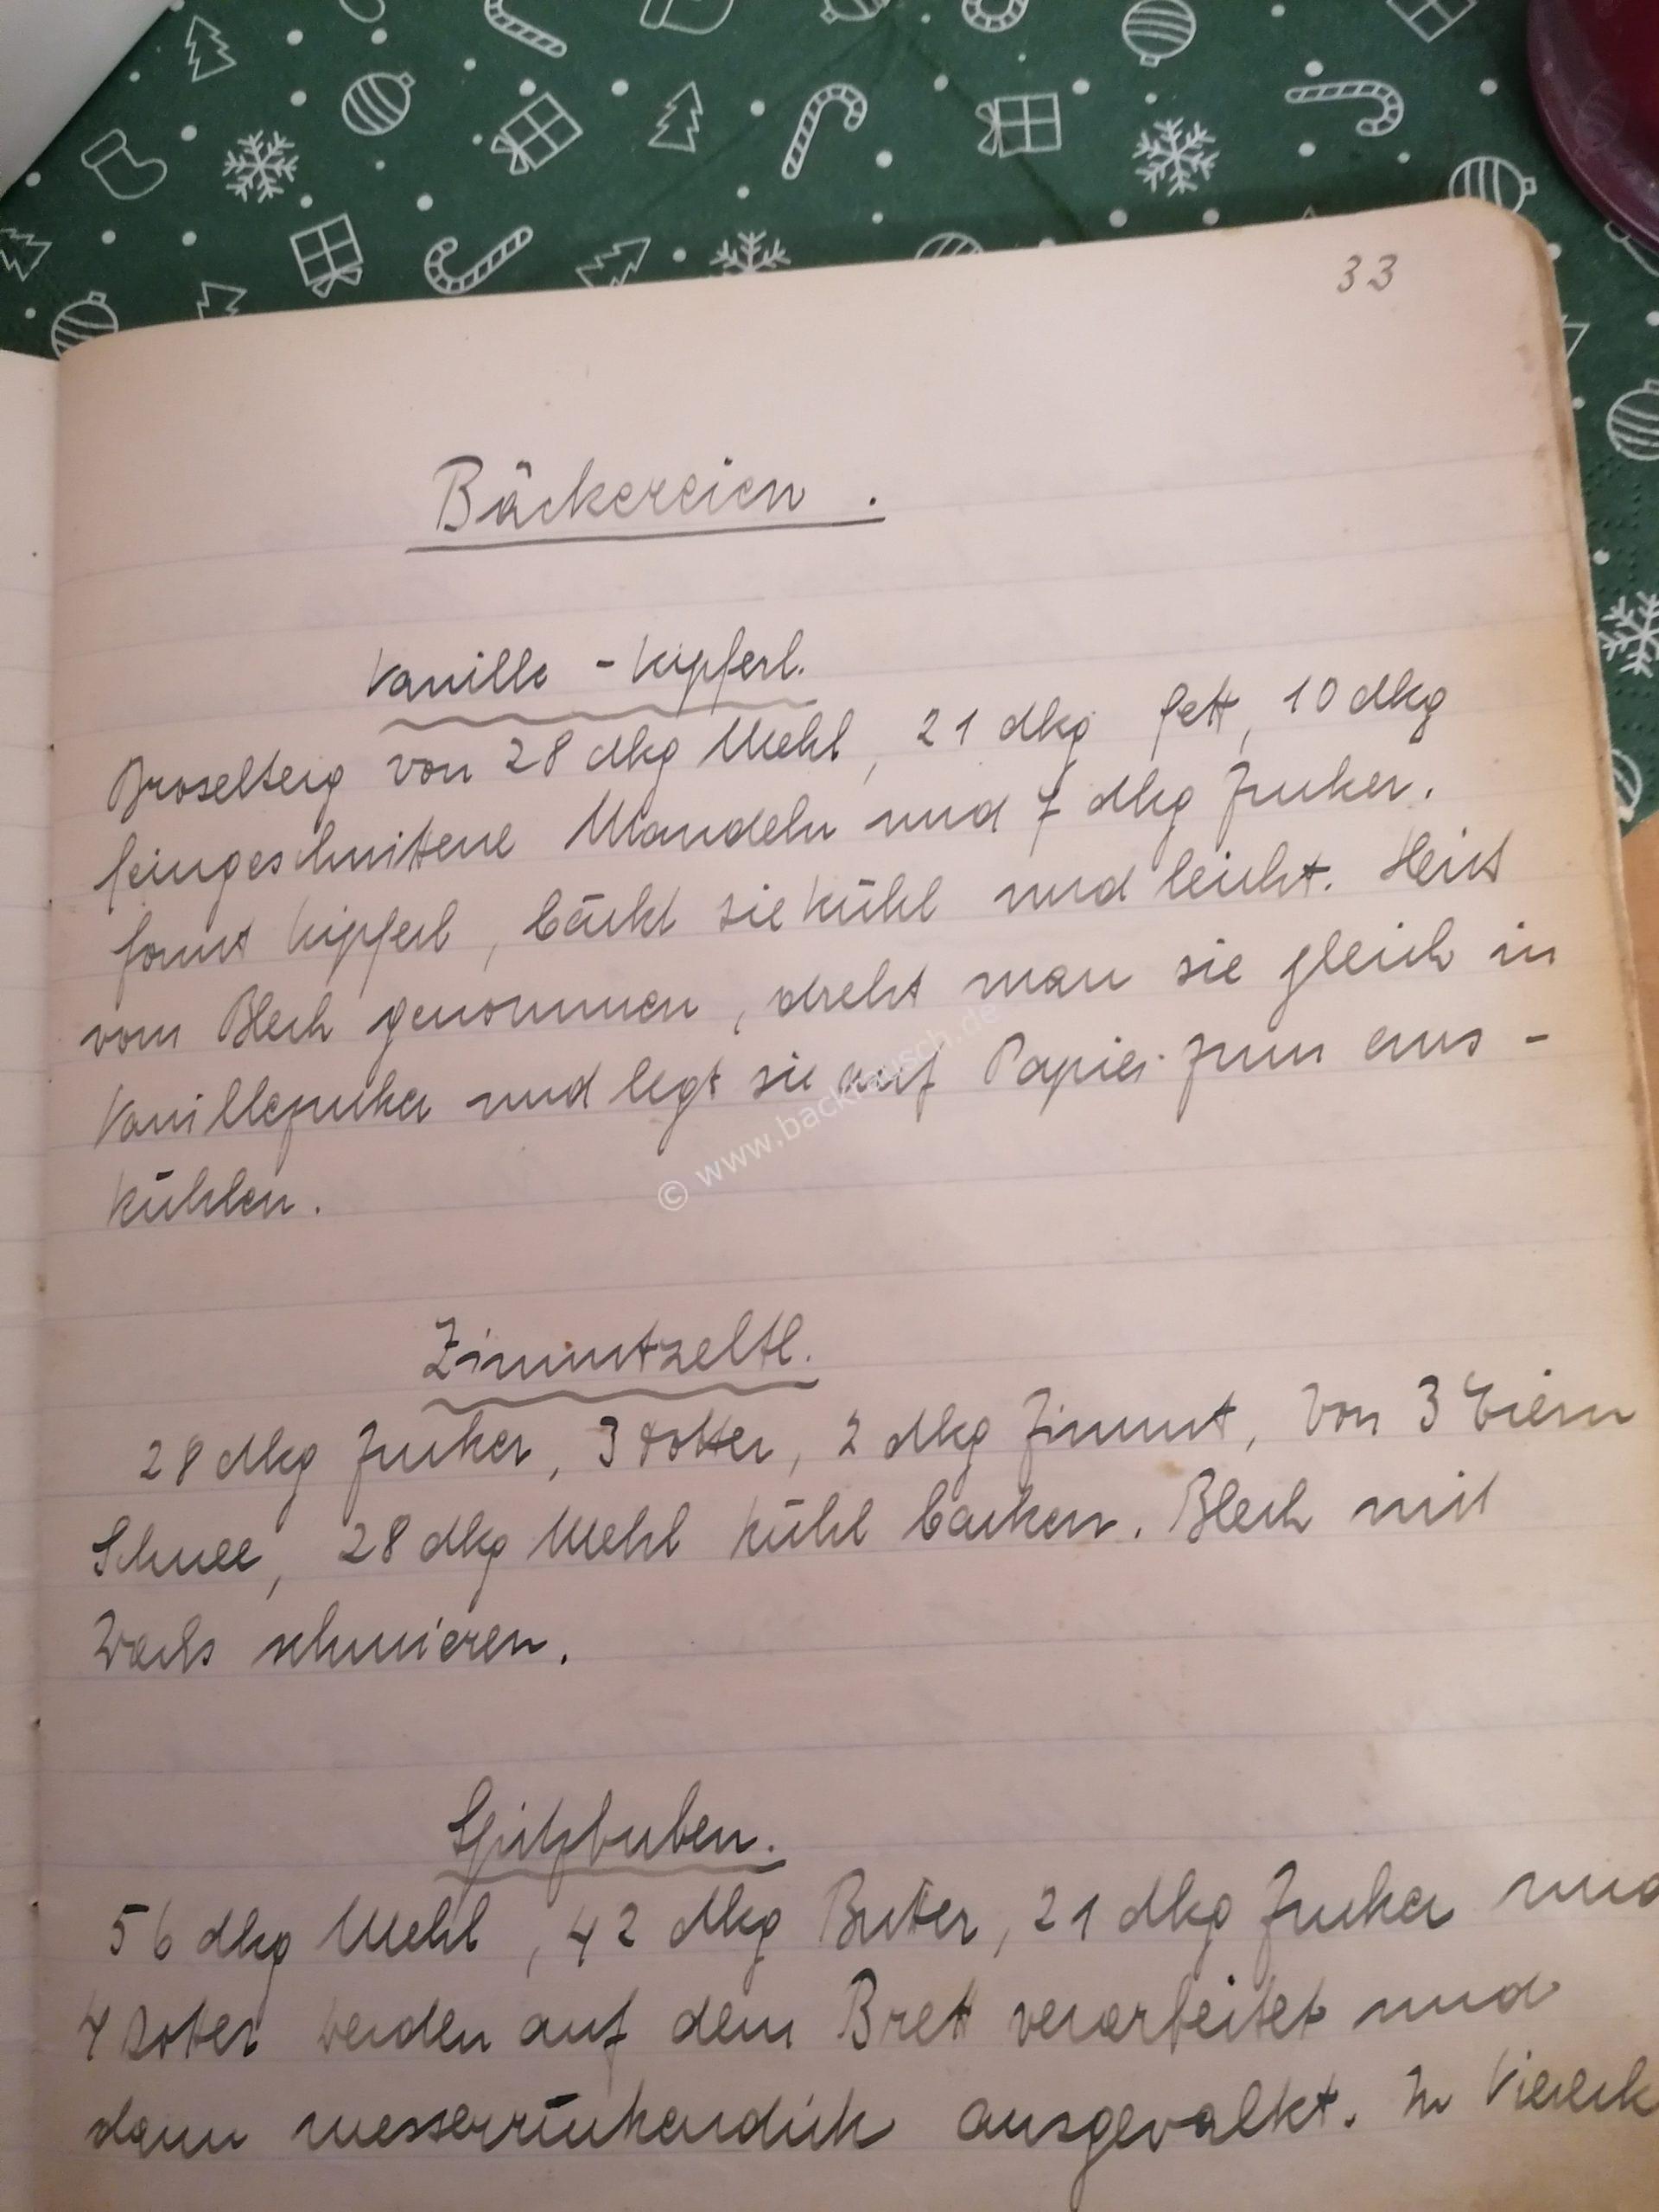 33
Bäckereien.
Vanille - Kipferl.
Broselteig von 28 dkg Mehl, 21 dkg Fett, 10 dkg
feingeschnittene Mandeln und 7 dkg Zucker.
formt Kipferl, bäckt sie kühl und leicht. Heiß
vom Blech genommen, dreht man sie gleich in
Vanillezucker und legt sie auf Papier zum aus -
kühlen.
© www.backrausch.de
Zimmtzeltl.
28 dkg Zucker, 3 Dotter, 2 dkg Zimmt, Von 3 Eiern
Schnee, 28 dkg Mehl kühl backen. Blech mit
Wachs schmieren.
Spitzbuben.
56 dkg Mehl, 42 dkg Butter, 21 dkg Zucker und
4 Dotter werden auf dem Brett verarbeitet und
dann messerrückendick ausgewalkt. In Viereck